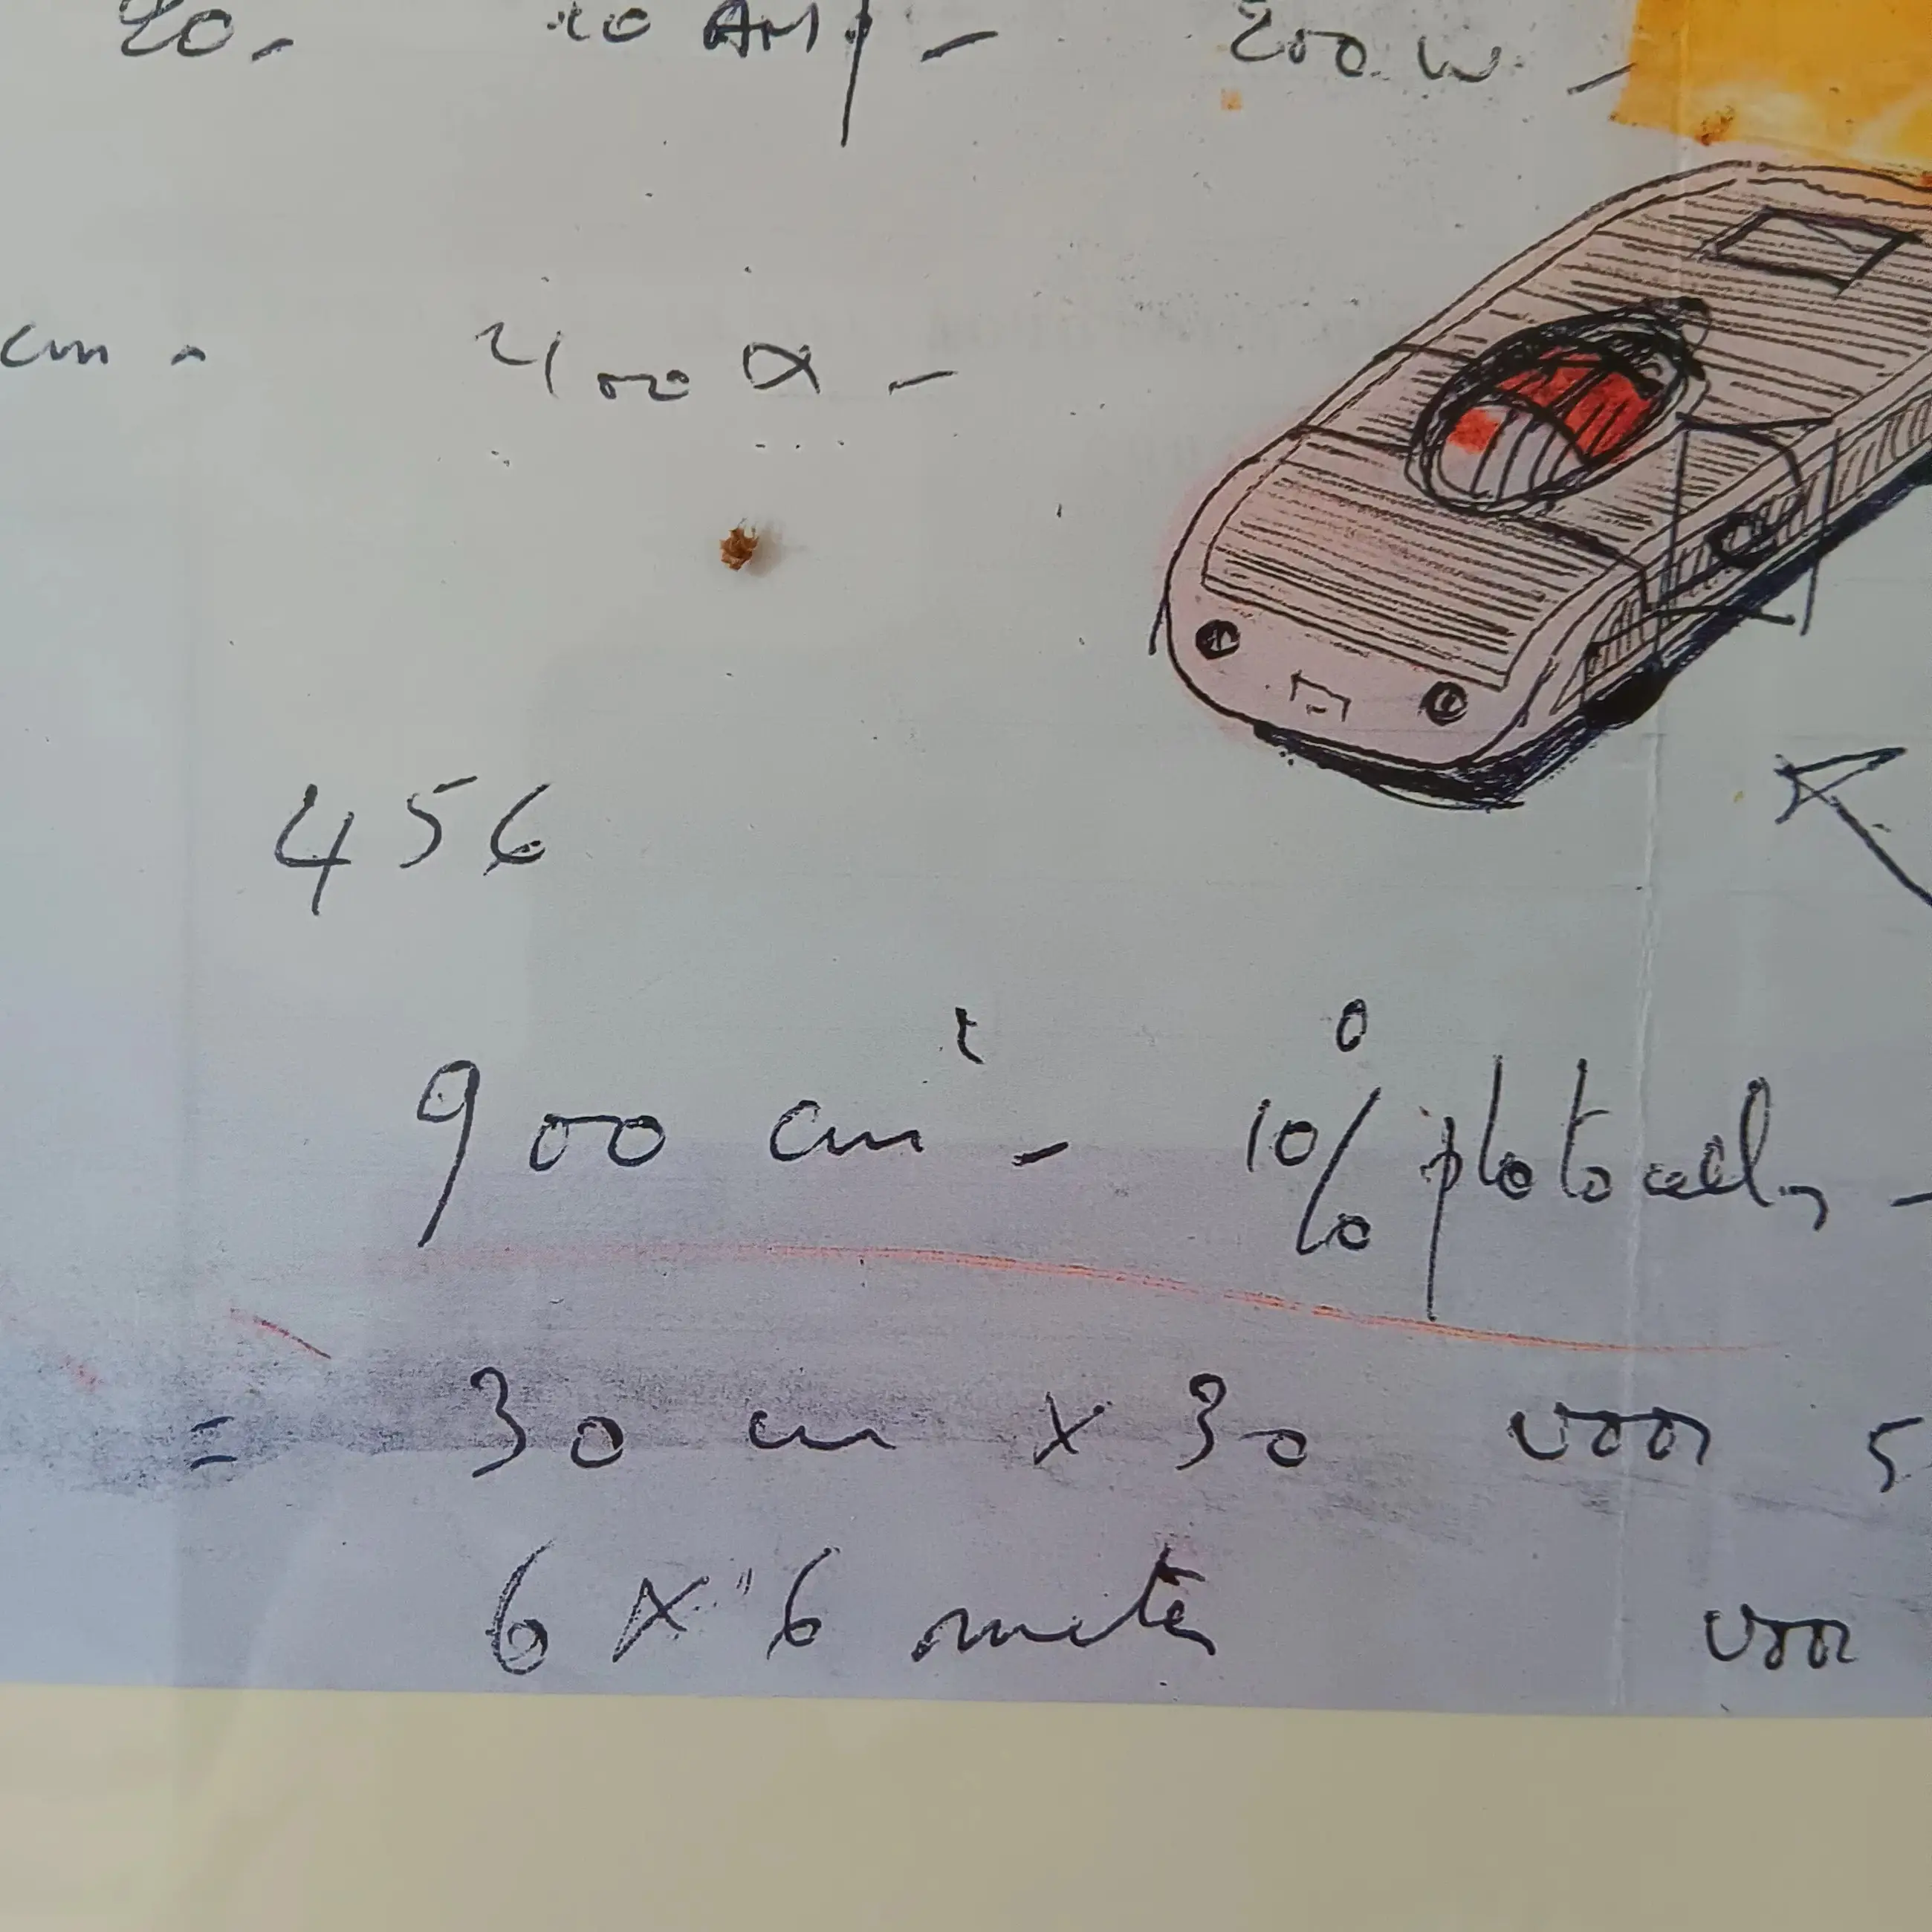 20 - 10 AMP - 200 W -
cm - 400 X -
456
900 cm² - 10% photocell, -
= 30 cm x 30 voor 5
6 x 6 meter voor